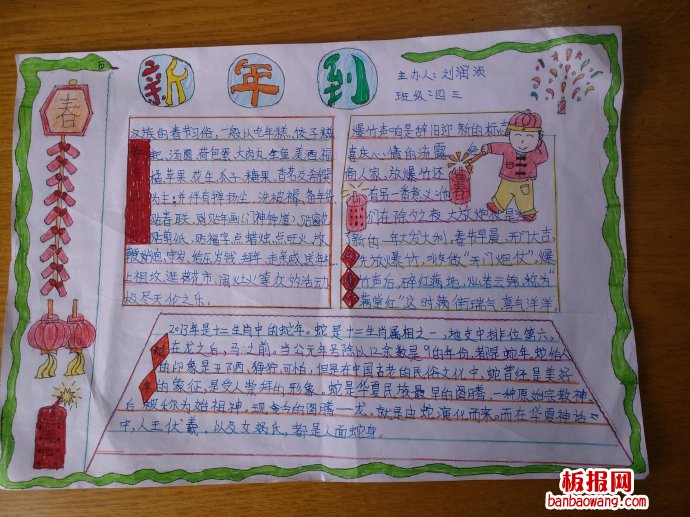 新年到
主办人:刘润
班级:四三
春
汉族的春节习俗,一般以吃年糕、饺子、糍
粑、汤圆、荷包蛋、大肉丸、全鱼、美酒、福
橘、苹果、花生、瓜子、糖果、香茗及
为主;并伴有掸扬尘、洗被褥、备年货
贴春联、贴年画、
贴剪纸、贴福字、点蜡烛、点旺火、放
鞭炮、守岁、给压岁钱、拜年、走亲戚、送年礼、
上祖坟、逛花市、闹社火等众多活动
极尽天伦之乐。
爆竹声响是辞旧迎新的标志、
喜庆心情的流露。经
商人家,放爆竹还
有另一番意义:他
们在除夕夜大放炮仗是
新的一年大发大利。春节早晨,开门大吉,
先放爆竹,叫做“开门炮仗”。爆
竹声后,碎红满地,灿若云锦,称为“
满堂红”。这时满街瑞气,喜气洋洋。
春
2013年是十二生肖中的蛇年。蛇是十二生肖属相之一,地支中排位第六。
在龙之后,马之前。当公元年号除以12余数是9的年份,都是蛇年。蛇给人
的印象是丑陋、狰狞可怕,但是在中国古老的民俗文化中,蛇曾经是美好
的象征,是受人崇拜的形象。蛇是华夏民族最早的图腾,一种原始宗教神。
被称为始祖神。现今的图腾—龙,就是由蛇演化而来。而在华夏神话
中,人王伏羲,以及女娲氏,都是人面蛇身。
蛇
年
板报网
banbaowang.com